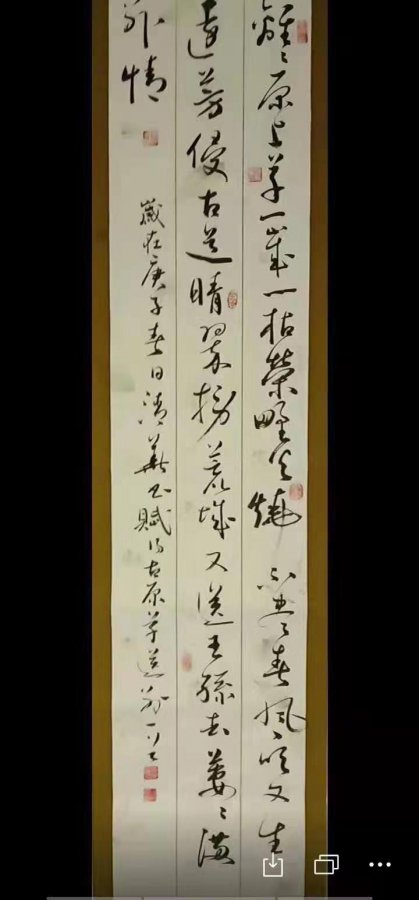 離離原上草一歲一枯榮野火燒不盡春風吹又生
遠芳侵古道晴翠接荒城又送王孫去萋萋滿
別情
歲在庚子春日清華書賦得古原草送別一首